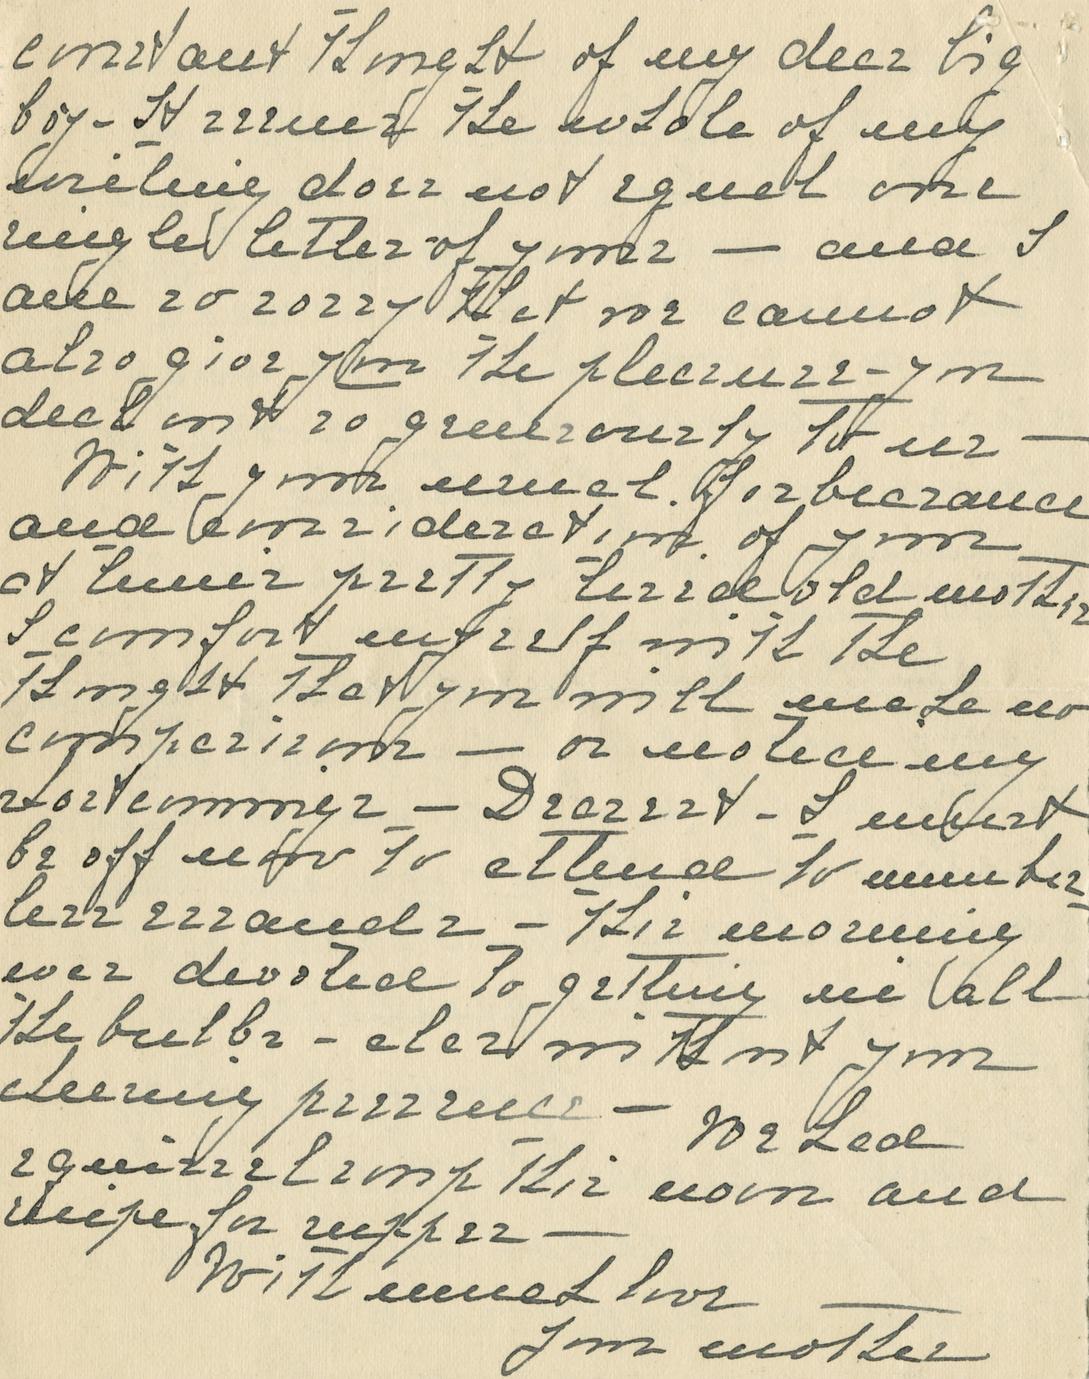 constant thought of my dear big
boy - It seems the whole of my
writing does not equal one
single letter of yours — and I
am so sorry that we cannot
also give you the pleasure - you
deal out so generously to us —
With your usual forbearance
and consideration of your
at times pretty tired old mother
I comfort myself with the
thought that you will make no
comparison — or notice my
shortcomings — Dearest - I must
be off now to attend to number
less errands - this morning
was devoted to getting in all
the bulbs - alas without your
cheering presence — We had
squirrel soup this noon and
snipe for supper —
With much love
Your mother